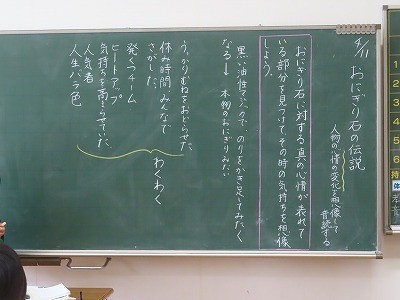 4/11 おにぎり石の伝説
人物の心情の変化を想像して
音読する
おにぎり石に対する真の心情が表れて
いる部分を見つけて、その時の気持ちを想像
しよう。
黒い油性マジックで、のりをかき足してみたく
なる→ 本物のおにぎりみたい
う、かりむねをおどらせた
休み時間、みんなで
さがした。
発くつチーム
ヒートアップ
気持ちを高まらせていた
人気者
人生バラ色
わくわく
1
2
3
4
5
6
持
体